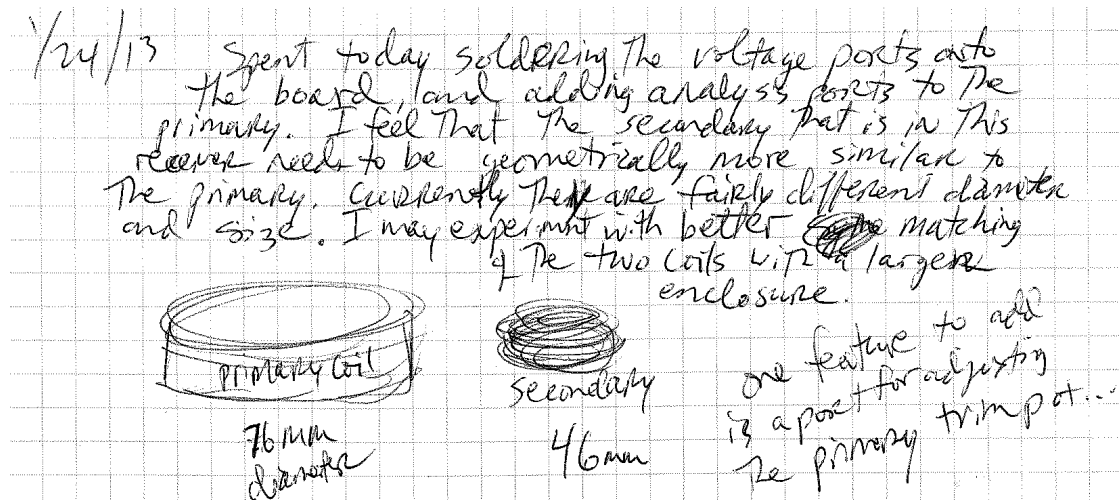 1/24/13 Spent today soldering the voltage ports onto
the board, and adding analysis ports to the
primary. I feel that the secondary that is in this
receiver needs to be geometrically more similar to
the primary. Currently they are fairly different diameter
and size. I may experiment with better matching
of the two coils with a larger
enclosure.
primary coil
76 mm
diameter
secondary
46 mm
one feature to add
is a port for adjusting
the primary trimpot...